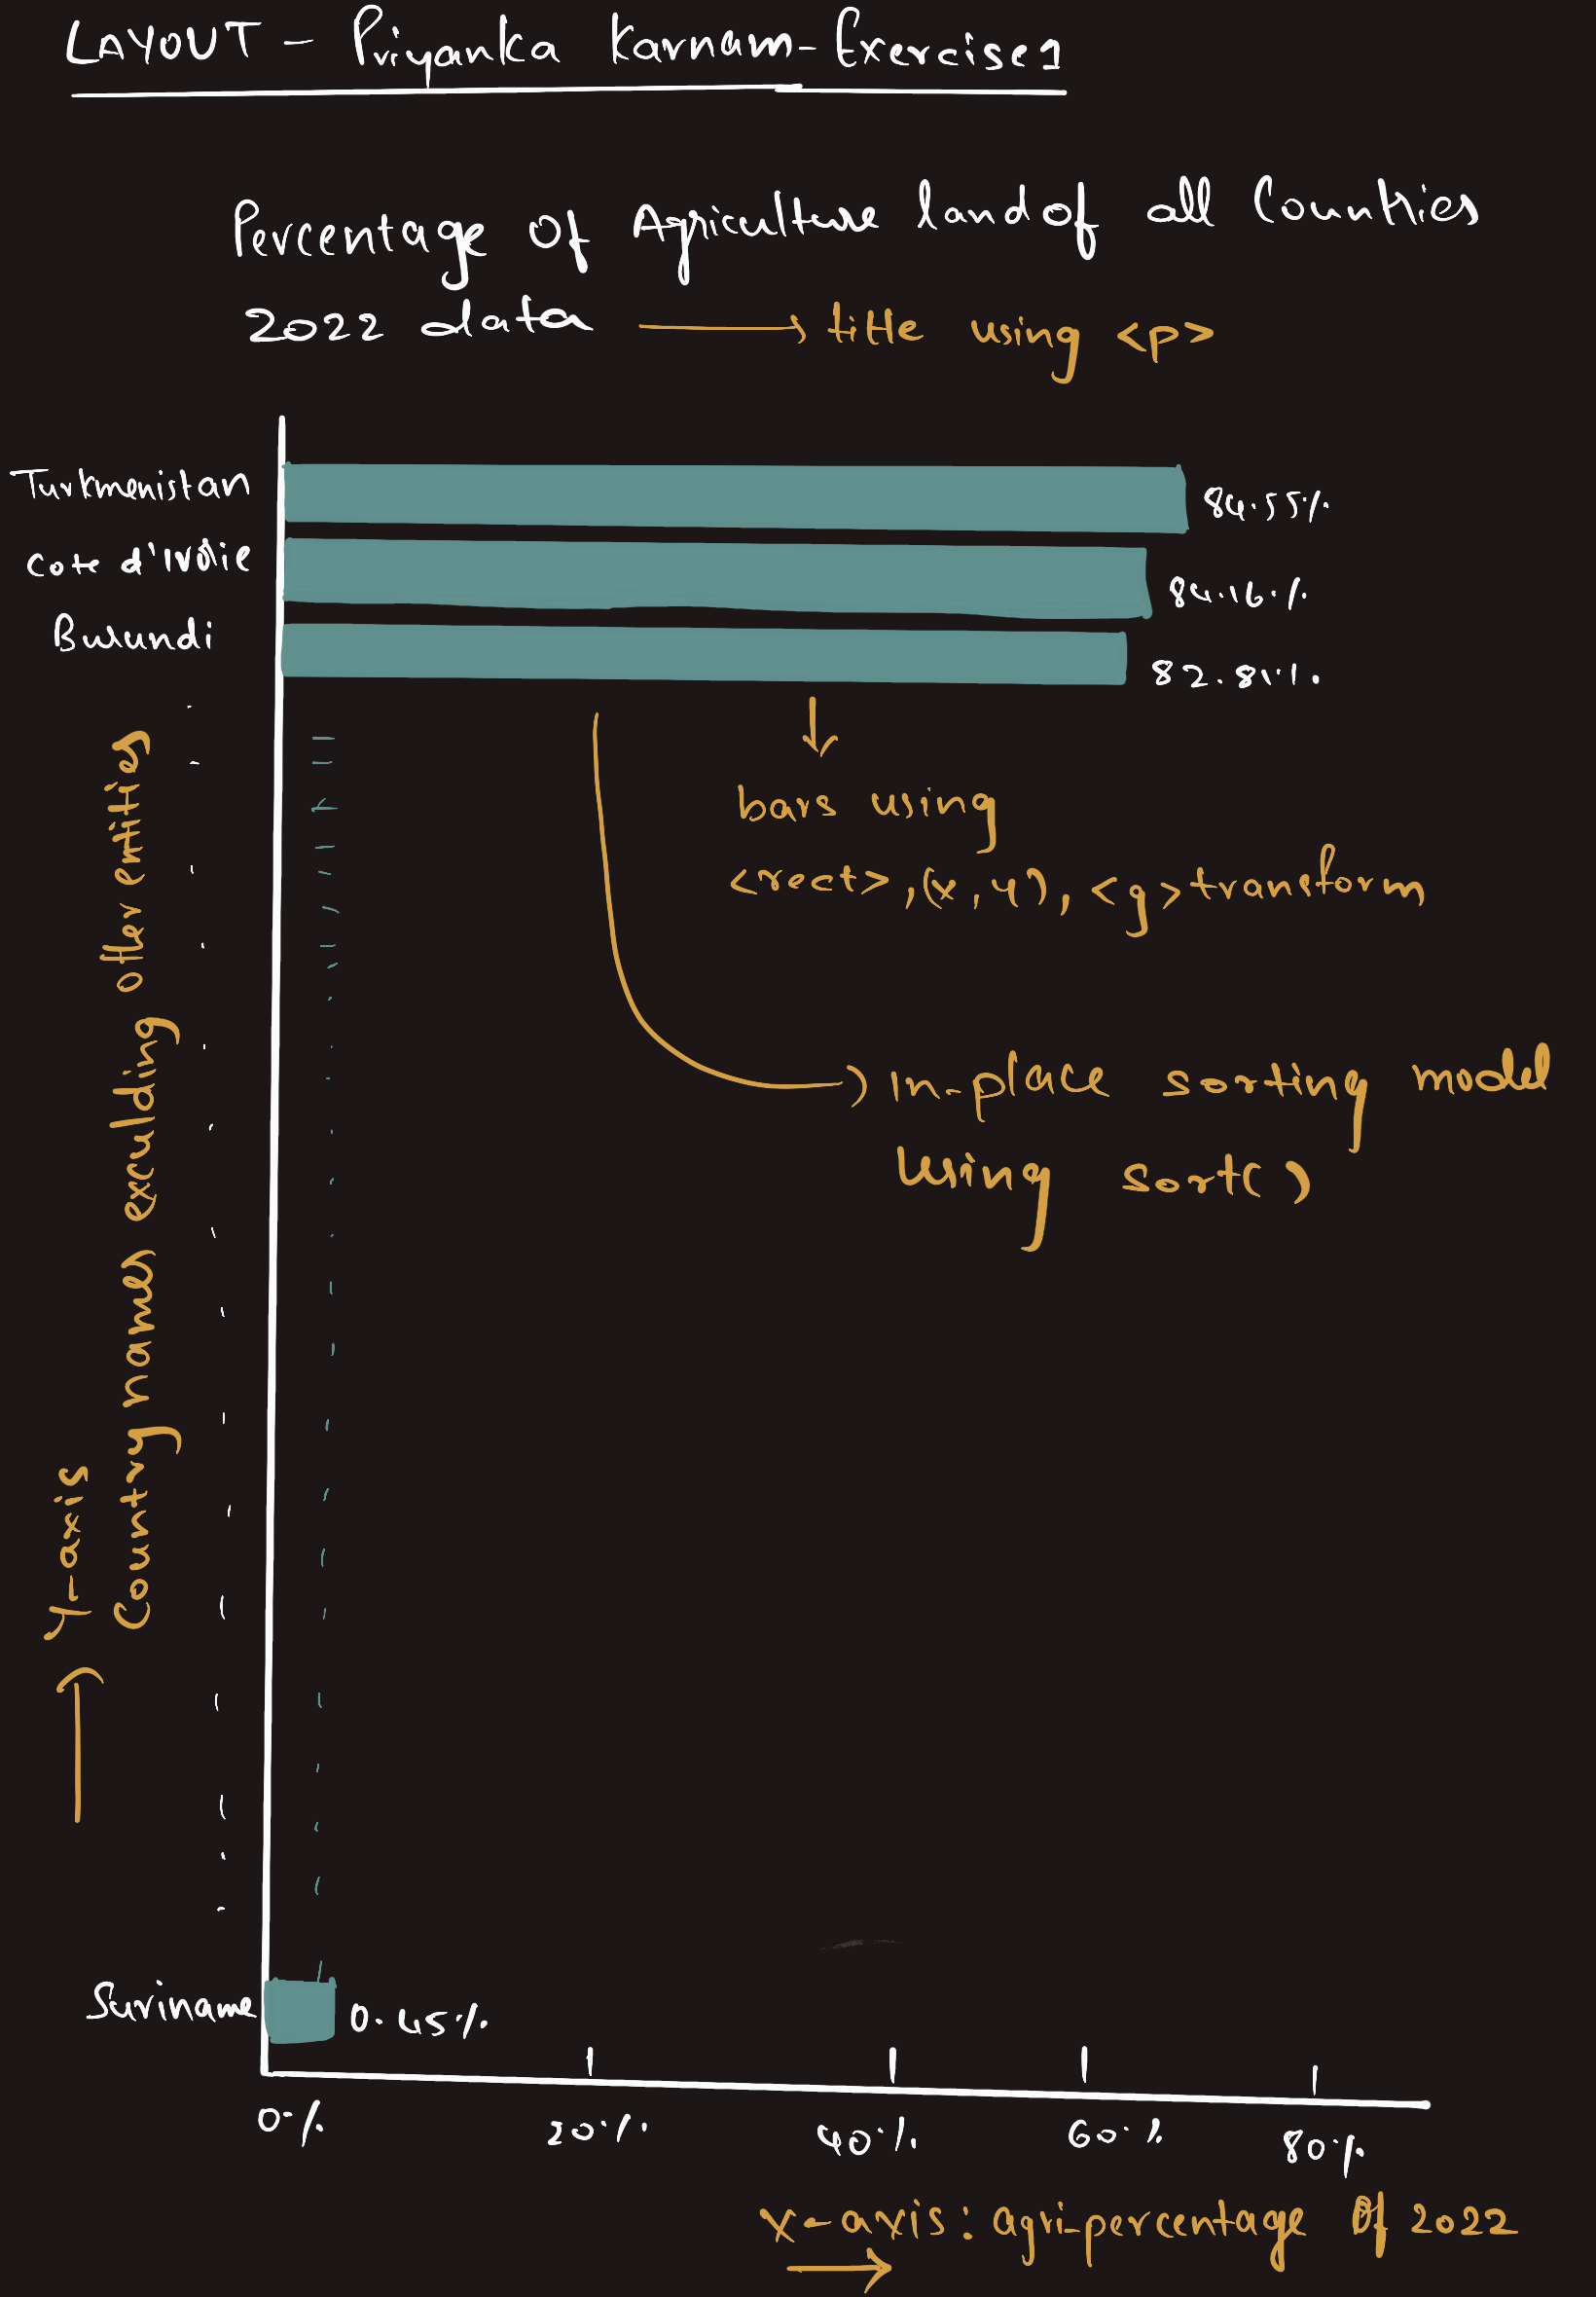 LAYOUT - Priyanka Karnam - Exercise 1
Percentage of Agriculture land of all Countries
2022 data → title using <p>
Turkmenistan 84.55%
Cote d'Ivolie 84.16%
Burundi 82.81%
bars using
<rect>, (x, y), <g> transform
in-place sorting model
using sort()
Y-axis
Country names exculding other entities
Suriname 0.45%
0% 20% 40% 60% 80%
x-axis: agri-percentage of 2022